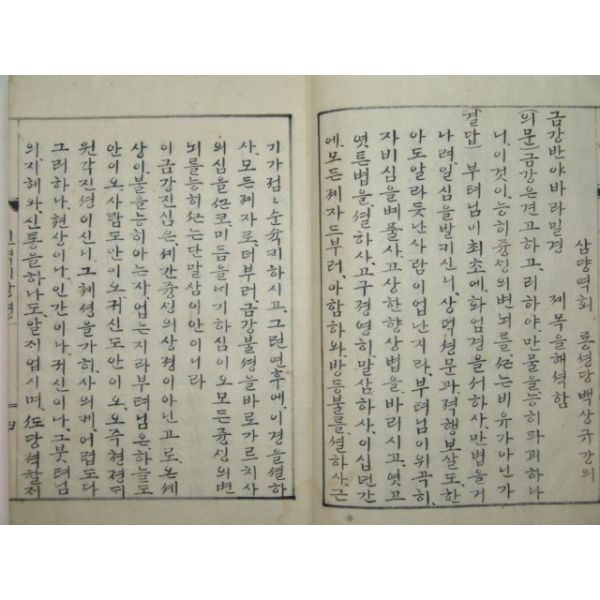 삼쟝역회 룡셩당 백상규 강의
금강반야바라밀경 제목을해셕함
(의문) 금강은견고하고, 리하야, 만물을능히파괴하나
니, 이것이, 능히즁생의번뇌를, 끈는비유가아닌가
(결답) 부텨님이최초에, 화엄경을셔하사, 만법을거
나려, 일심을발키시니, 상덕셩문과, 젹행보살도, 한
아도알라듯난사람이업난지라, 부텨님이위곡히
자비심을뻬풀사, 고상한향상법을바리시고, 엿고
엿튼법을, 셜하사, 고구졍영히, 말삼하사, 이십년간
에, 모든졔자드부러, 아함하와, 방등불를, 셜하사, 근
기가졈〻순슉키하시고, 그런연후에, 이경을셜하
사, 모든졔자로, 더부러, 금강불셩을바로가르치사
의심을끈코, 미듬을내기하심이오모든즁생의번
뇌를능히끈는단말삼이안이니라
이금강진심은, 세간즁생의상졍이아닌고로, 온세
상이, 불을능히아는사, 업는지라부텨님은하늘도
안이오, 사람도안이오귀신도안이오오즉쳥졍뒤
원각진셩이신니, 그쳬셩을가히, 사의께, 어렵도다
그러하나, 텬상이나, 인간이나, 귀신이나, 그붓텨님
의지혜와신통을하나도알지업시며, 칭당셕할지